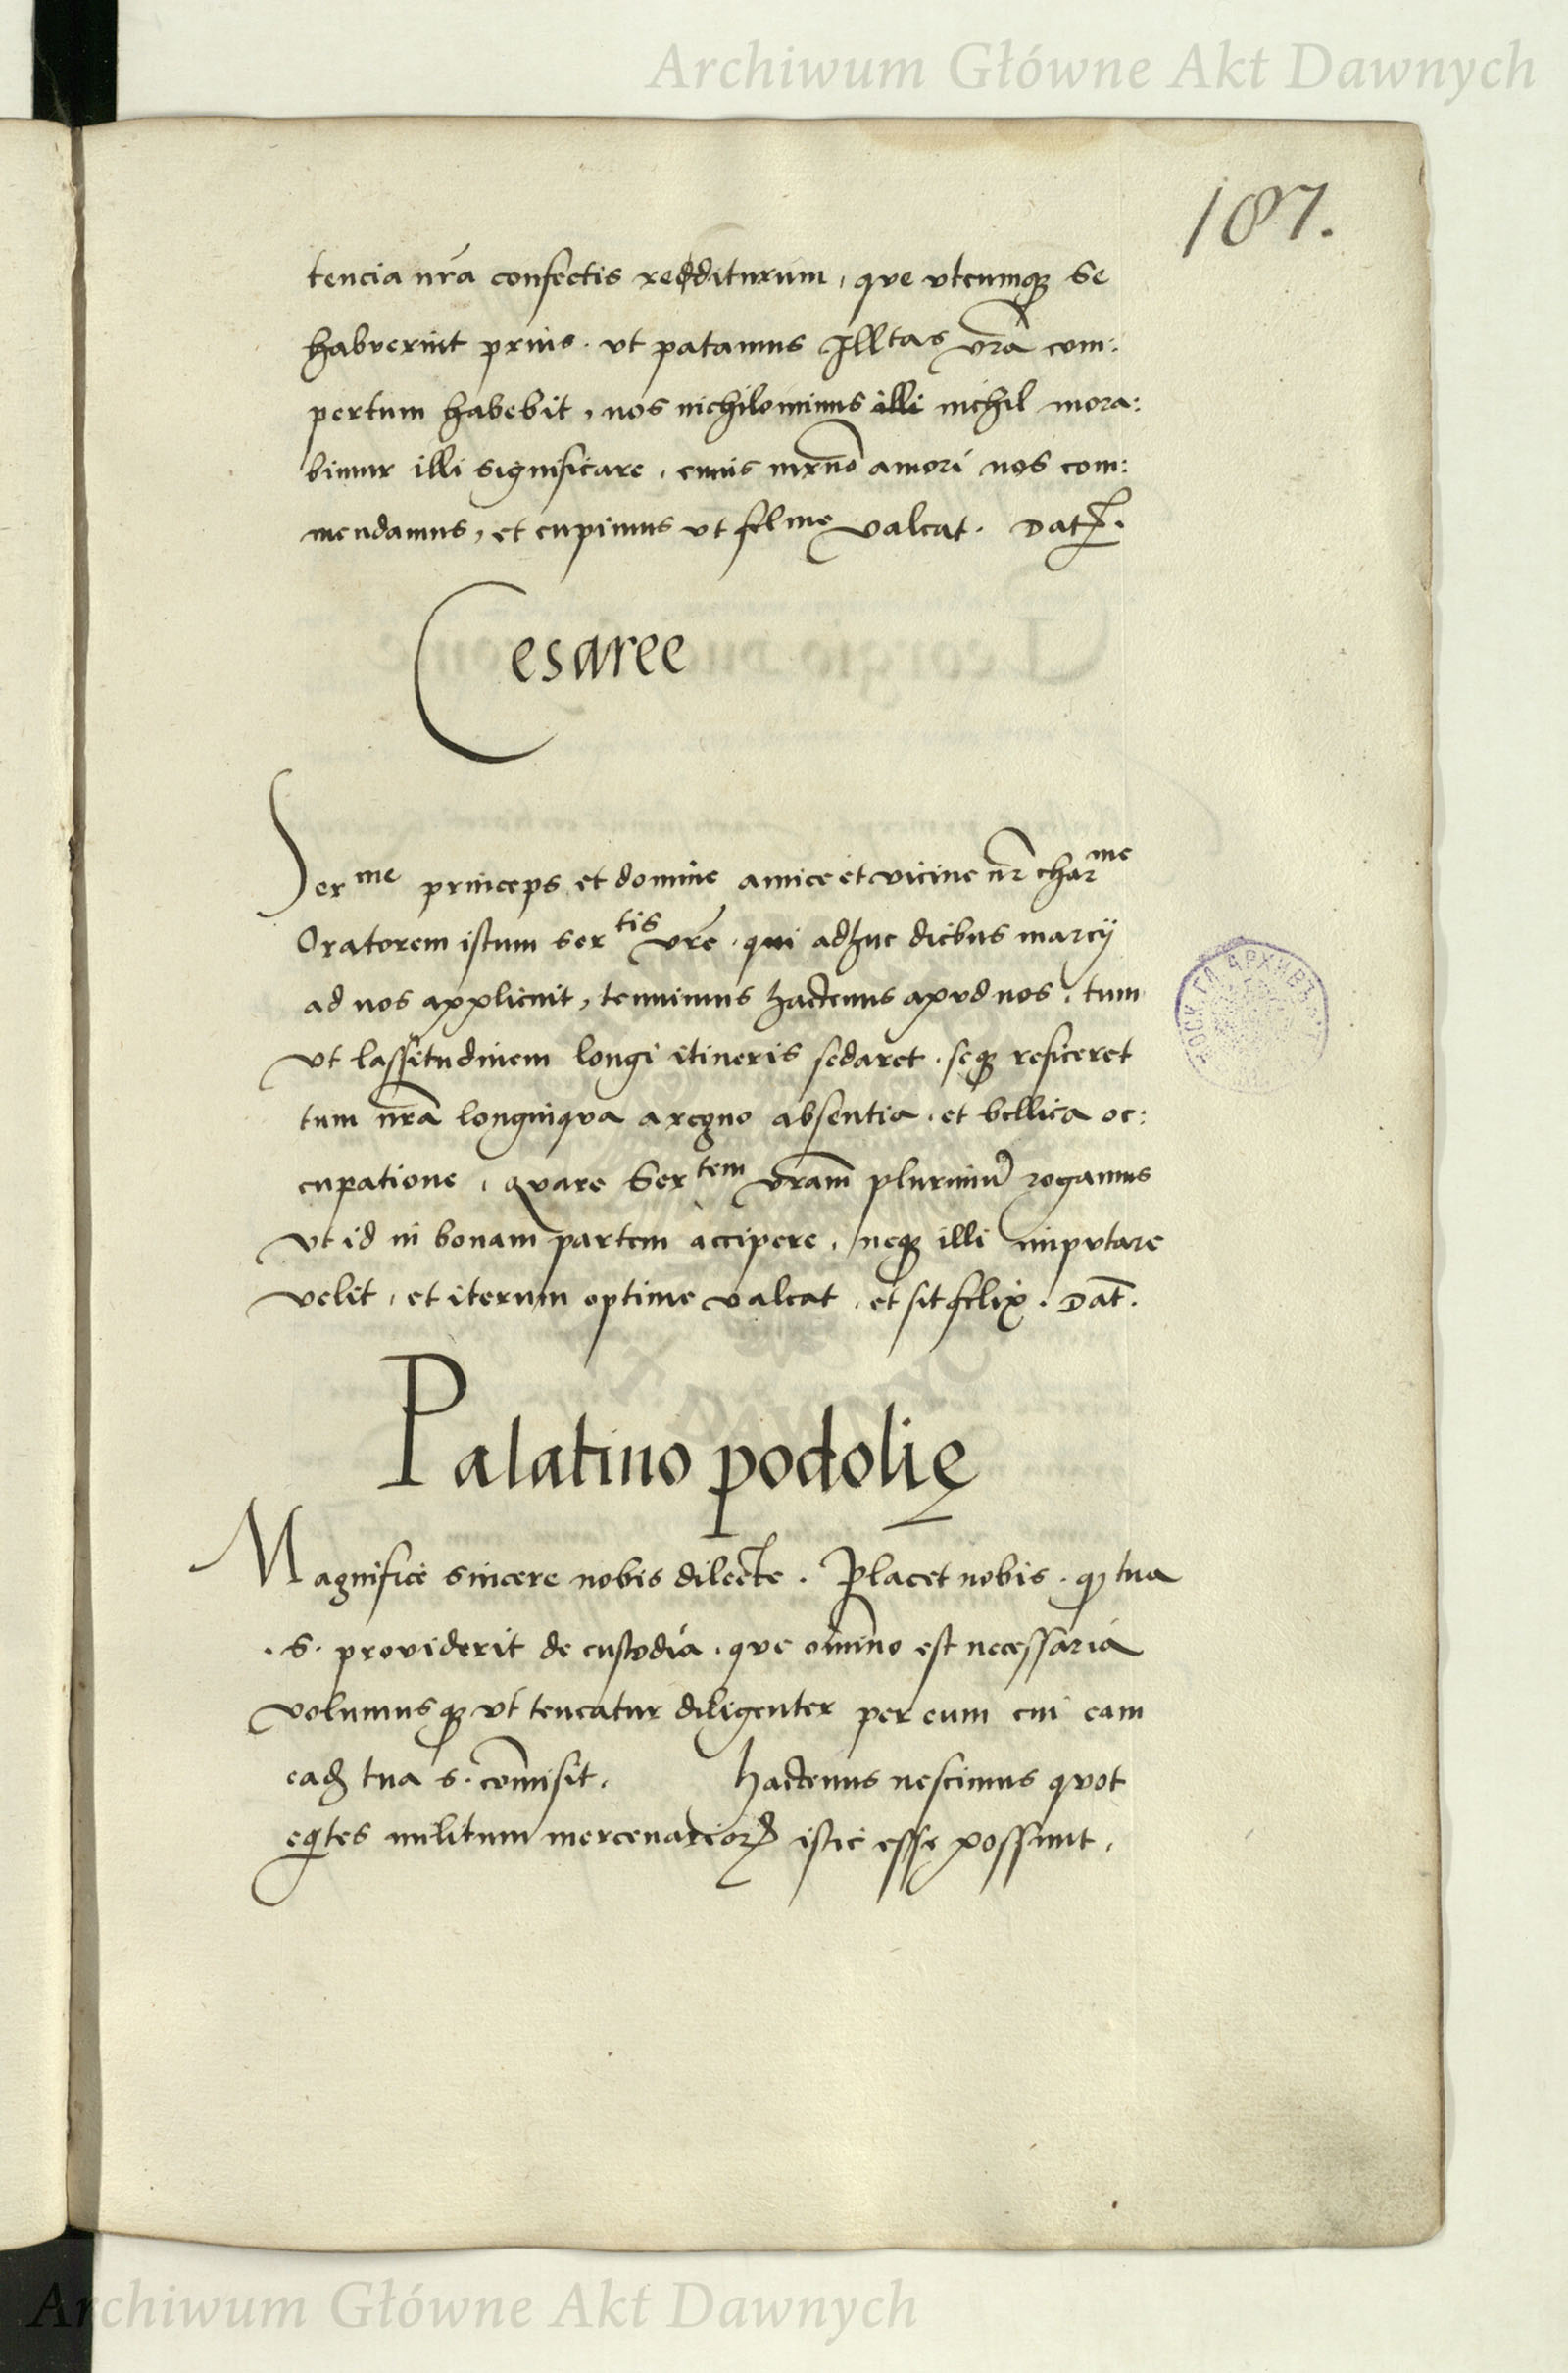 Archiwum Główne Akt Dawnych
187.
tencia nr̃a confectis redditurum, que vtcumqꝫ se
habuerint prius. vt putamus Illtas vr̃a com:
pertum habebit, nos nichilominus illi nichil mora:
bimur illi significare, cuius mr̃no amori nos com:
mendamus, et cupimus vt felme valeat. Dat.
Cesaree
Serme princeps et domine amice et vicine nr̃ charme
Oratorem istum Sertis vr̃e. qui adhuc diebus marcij
ad nos applicuit, tenuimus hactenus apud nos, tum
vt lassitudinem longi itineris sedaret. seqꝫ reficeret
tum nr̃a longinqua a regno absentia. et bellica oc:
cupatione, quare Sertem vr̃am plurimũ rogamus
vt id in bonam partem accipere, neqꝫ illi imputare
velit, et iterum optime valeat, et sit felix. Dat̃.
Palatino podolię
Magnifice sincere nobis dilecte. Placet nobis. qꝫ tua
.S. providerit de custodia. que om̃ino est necessaria
volumusqꝫ vt teneatur diligenter per eum cui eam
eadꝫ tua S. com̃isit. hactenus nescimus quot
eqtes militum mercenarioꝝ istic esse possunt,
Archiwum Główne Akt Dawnych